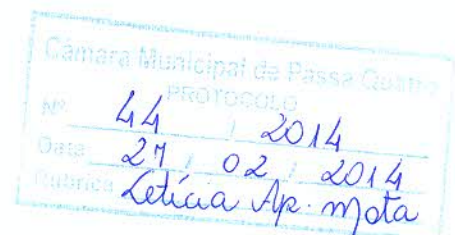 Câmara Municipal de Passa Quatro
PROTOCOLO
Nº 44 / 2014
Data 27 / 02 / 2014
Rubrica Letícia Ap. Mota